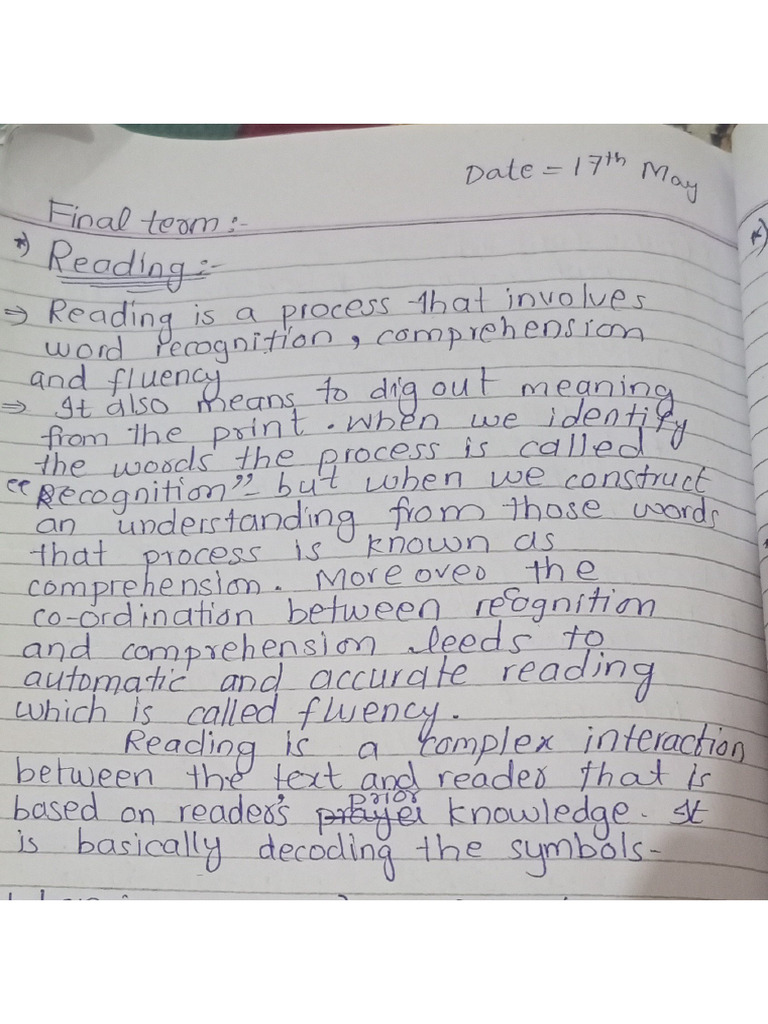 Date = 17th May
Final term:-
*) Reading:-
⇒ Reading is a process that involves
word recognition, comprehension
and fluency
⇒ It also means to dig out meaning
from the print. When we identify
the words the process is called
"Recognition"- but when we construct
an understanding from those words
that process is known as
comprehension. Moreover the
co-ordination between recognition
and comprehension leeds to
automatic and accurate reading
which is called fluency.
Reading is a complex interaction
between the text and reader that is
based on reader's prior knowledge. It
is basically decoding the symbols-